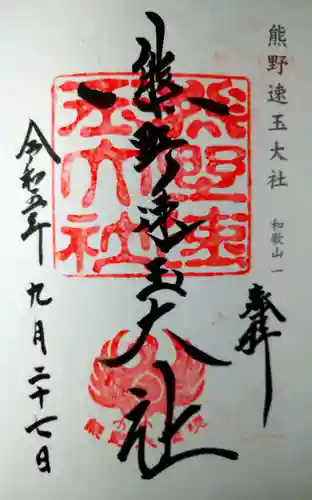 熊野速玉大社 和歌山 一
奉拝
熊野速玉大社
令和五年
九月二十七日